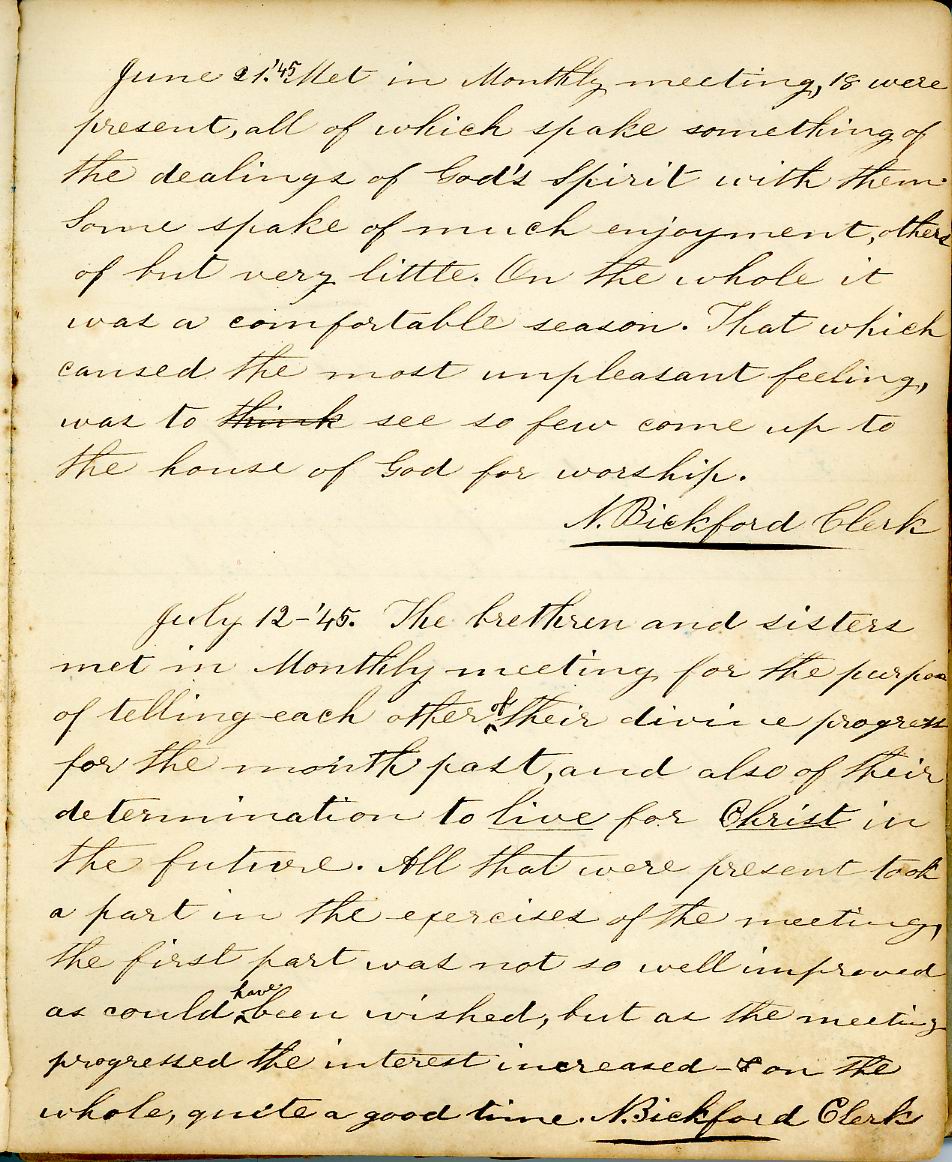 June 21.'45 Met in Monthly meeting, 18 were
present, all of which spake something of
the dealings of God's Spirit with them.
Some spake of much enjoyment, others
of but very little. On the whole it
was a comfortable season. That which
caused the most unpleasant feeling,
was to think see so few come up to
the house of God for worship.
N. Bickford Clerk
July 12-'45. The brethren and sisters
met in Monthly meeting for the purpose
of telling each other of their divine progress
for the month past, and also of their
determination to live for Christ in
the future. All that were present took
a part in the exercises of the meeting,
the first part was not so well improved
as could have been wished, but as the meeting
progressed the interest increased - & on the
whole, quite a good time. N. Bickford Clerk